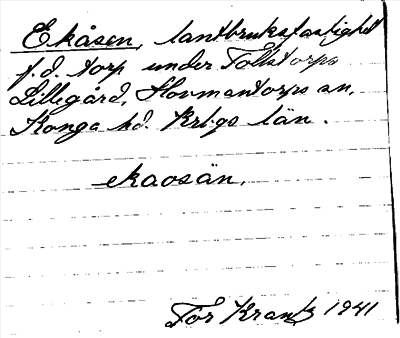 Ekåsen, lantbruksfastighet
f.d. torp under Tollstorps
Lillegård, Hovmantorps sn,
Konga hd. Krbgs län.
ekaosän.
Tor Krantz 1941